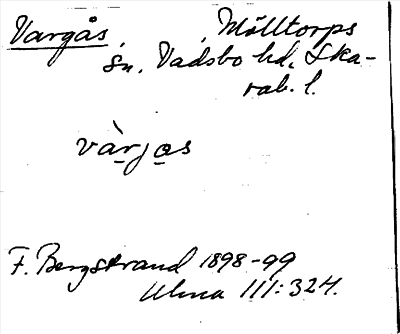 Vargås, Mölltorps
sn, Vadsbo hd, Ska-
rab. l.
vàrjas
F. Bergstrand 1898-99
Ulma 111:324.